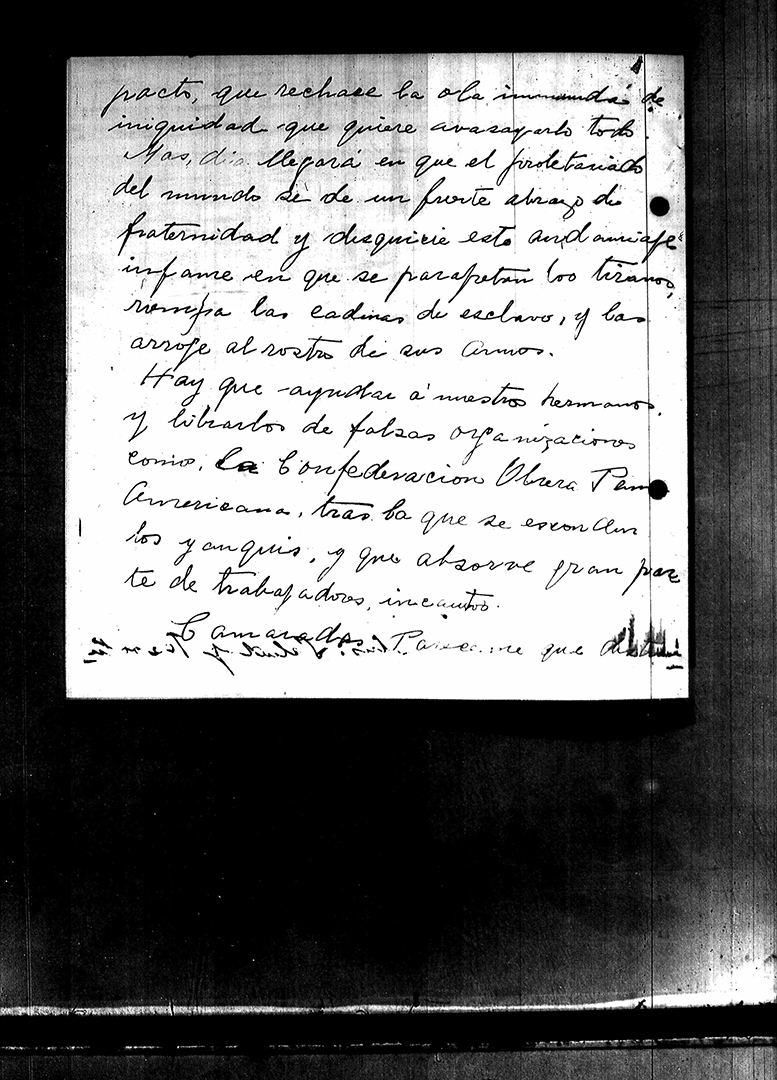 pacto, que rechace la ola inmunda de
iniquidad que quiere avasayarlo todo.
Mas, dia llegará en que el proletariado
del mundo sé de un fuerte abrazo de
fraternidad y desquicie este andamiaje
infame en que se parapetan los tiranos,
rompa las cadenas de esclavo, y las
arroje al rostro de sus amos.
Hay que ayudar á nuestros hermanos,
y librarlos de falsas organizaciones
como, la Confederacion Obrera Pan
Americana, tras la que se esconden
los yanquis, y que absorve gran par
te de trabajadores, incautos.
Camaradas Pareceme que